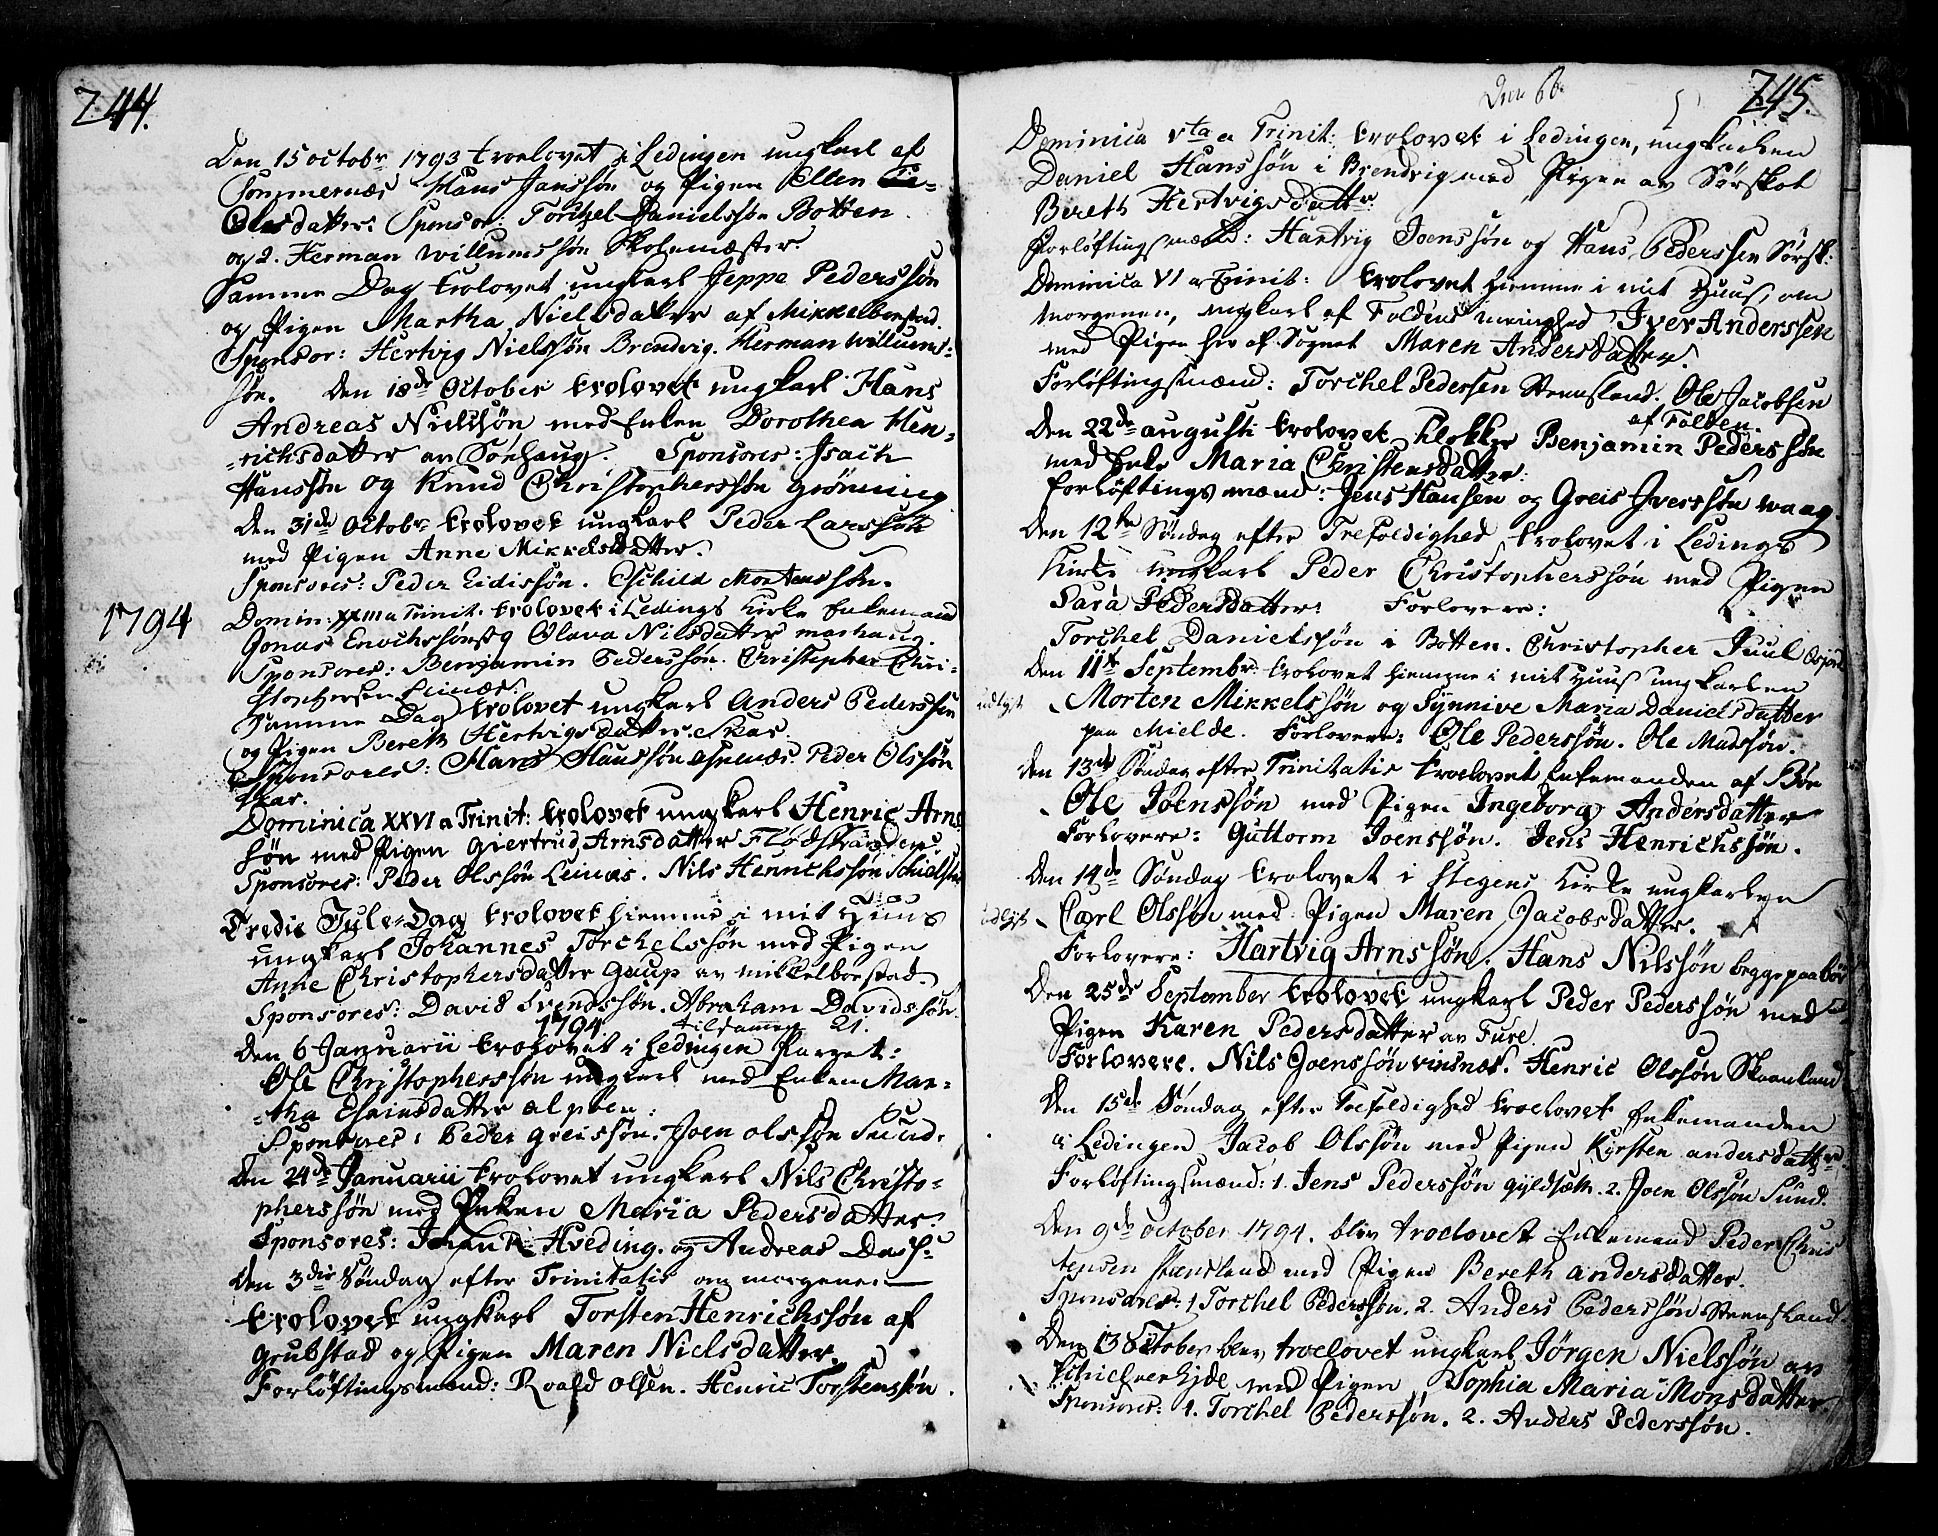 244.
Den 15 octobr 1793 troelovet i Ledingen ungkarl af
Sommernæs Hans Janssøn og Pigen Ellen
Olesdatter: Sponsor: Torchel Danielssøn Botten.
og 2. Herman Willumssøn Skolemæster.
Samme Dag trolovet ungkarl Jeppe Pederssøn
og Pigen Martha Nielsdatter af Mikkelborstad.
Sponsor: Hertvig Nielssøn Brendvig. Herman Willums-
søn. Den 18de October trolovet ungkarl Hans
Andreas Nielssøn med Enken Dorothea Hen-
richsdatter av Sørhaug. Sponsores: Isach
Hanssøn og Knud Christopherssøn Grønning
Den 31de Octobr trolovet ungkarl Peder Larssøn
med Pigen Anne Mikkelsdatter.
Sponsores: Peder Eidissøn. Eschild Mortenssøn.
1794
Domin: XXIII a Trinit. trolovet i Ledings Kirke Enkemand
Jonas Enochssøn og Olava Nilsdatter marhaug.
Sponsores: Benjamin Pederssøn. Christopher Chri-
stophersen Leinæs.
Samme Dag trolovet ungkarl Anders Pederssen
og Pigen Bereth Hertvigsdatter. Skar.
Sponsores: Hans Hanssøn Peder Olssøn
Skar.
Dominica XXVI a Trinit: trolovet ungkarl Henric Arns
søn med Pigen Giertrud Arnsdatter
Sponsores: Peder Olssøn Leinæs. Nils Henrichssøn
Tredie Jule-Dag trolovet hiemme i mit Huus
ungkarl Johannes Torchelssøn med Pigen
Anne Christophersdatter Gaup av mikkelborstad.
Sponsores: David Svendssøn. Abraham Davidssøn.
1794 tilsammen 21.
Den 6 Januarii trolovet i Ledingen Parret:
Ole Christopherssøn ungkarl med Enken Mar-
tha Esaiasdatter
Sponsores: Peder Greissøn. Joen Olssøn Sund.
Den 24de Januarii trolovet ungkarl Nils Christo-
pherssøn med Enken Maria Pedersdatter.
Sponsores: Hveding. og Andreas Dass.
Den 3die Søndag efter Trinitatis om morgenen
trolovet ungkarl Torsten Henrichssøn af
Grubstad og Pigen Maren Nielsdatter.
Forløftingsmænd: Roald Olsen. Henric Torstenssøn.
245.
Dominica Vta a Trinit: trolovet i Ledingen, ungkarlen
Daniel Hanssøn i Brendvig med Pigen av Sørskot
Bereth Hertvigsdatter
Forløftingsmænd: Hartvig Joenssøn og Hans Pederssen Sørsk:
Dominica VI a Trinit: trolovet hiemme i mit Huus, om
morgenen, ungkarl af Foldens meenighed Iver Anderssen
med Pigen her af Sognet Maren Andersdatter.
Forløftingsmænd: Torchel Pedersen Steensland. Ole Jacobsen
af Folden.
Den 22de augusti trolovet Klokker Benjamin Pederssøn
med Enke Maria Christensdatter.
Forløftingsmænd: Jens Hansen og Greis Iverssøn waag.
Den 12te Søndag efter Trefoldighed trolovet i Ledings
Kirke ungkarl Peder Christopherssøn med Pigen
Sara Pedersdatter: Forlovere:
Torchel Danielssøn i Botten. Christopher Juul
Den 11te Septembr trolovet hiemme i mit Huus ungkarlen
Morten Mikkelssøn og Synnive Maria Danielsdatter
paa Mielde. Forlovere: Ole Pederssøn. Ole Madssøn.
Den 13de Søndag efter Trinitatis troelovet Enkemanden af Bøe
Ole Joenssøn med Pigen Ingeborg Andersdatter
Forlovere: Guttorm Joenssøn. Jens Henrichssøn.
Den 14de Søndag trolovet i Stegens Kirke ungkarlen
Carl Olssøn med Pigen Maren Jacobsdatter.
Forlovere: Hartvig Arnssøn. Hans Nilssøn begge paa bør
Den 25de September trolovet ungkarl Peder Pederssøn med
Pigen Karen Pedersdatter av Fure.
Forlovere. Nils Joenssøn vinsnæs. Henric Olssøn Skaanland
Den 15de Søndag efter Trefoldighed troelovet Enkemanden
i Ledingen Jacob Olssøn med Pigen Kirsten andersdatter
Forløftingsmænd: 1. Jens Pederssøn gyldsæth. 2. Joen Olssøn Sund.
Den 9de october 1794. blev troelovet Enkemand Peder Chris
tensen Steensland med Pigen Bereth andersdatter.
Sponsores: 1 Torchel Pederssøn. 2. Anders Pederssøn Steensland.
Den 13 October blev troelovet ungkarl Jørgen Nielssøn av
med Pigen Sophia Maria Monsdatter
Sponsores: 1. Torchel Pederssøn. 2. Anders Pederssøn.